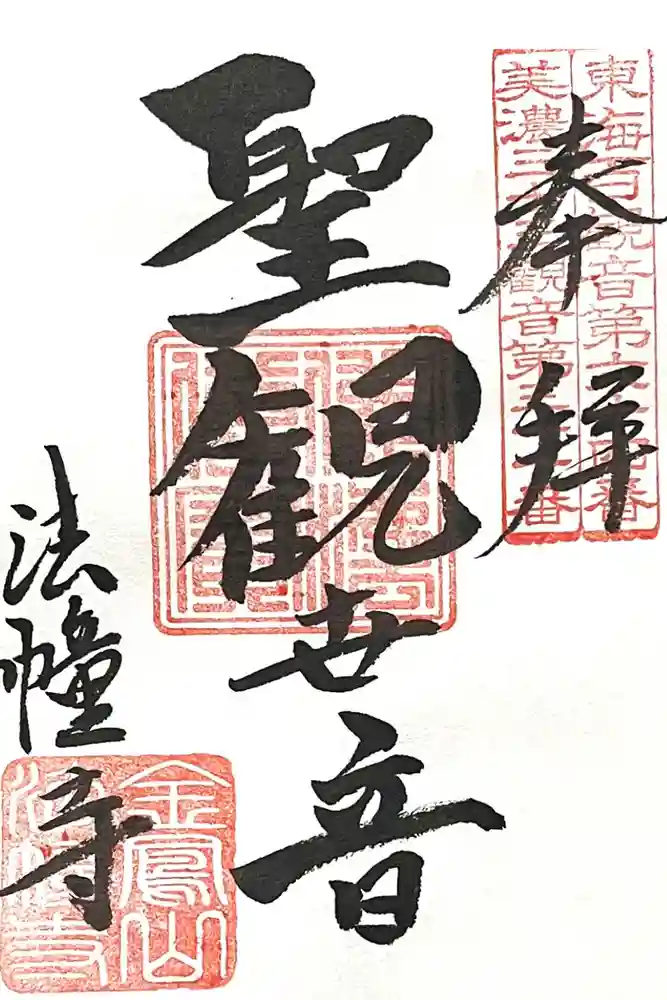 奉拝
東海百観音第
美濃三十三観音第三
番
聖観世音
法幢寺
金鳳山
法幢寺